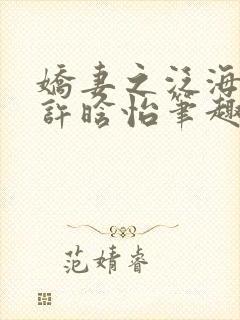 嬌妻之泛海
許晗怡筆趣
范婧睿